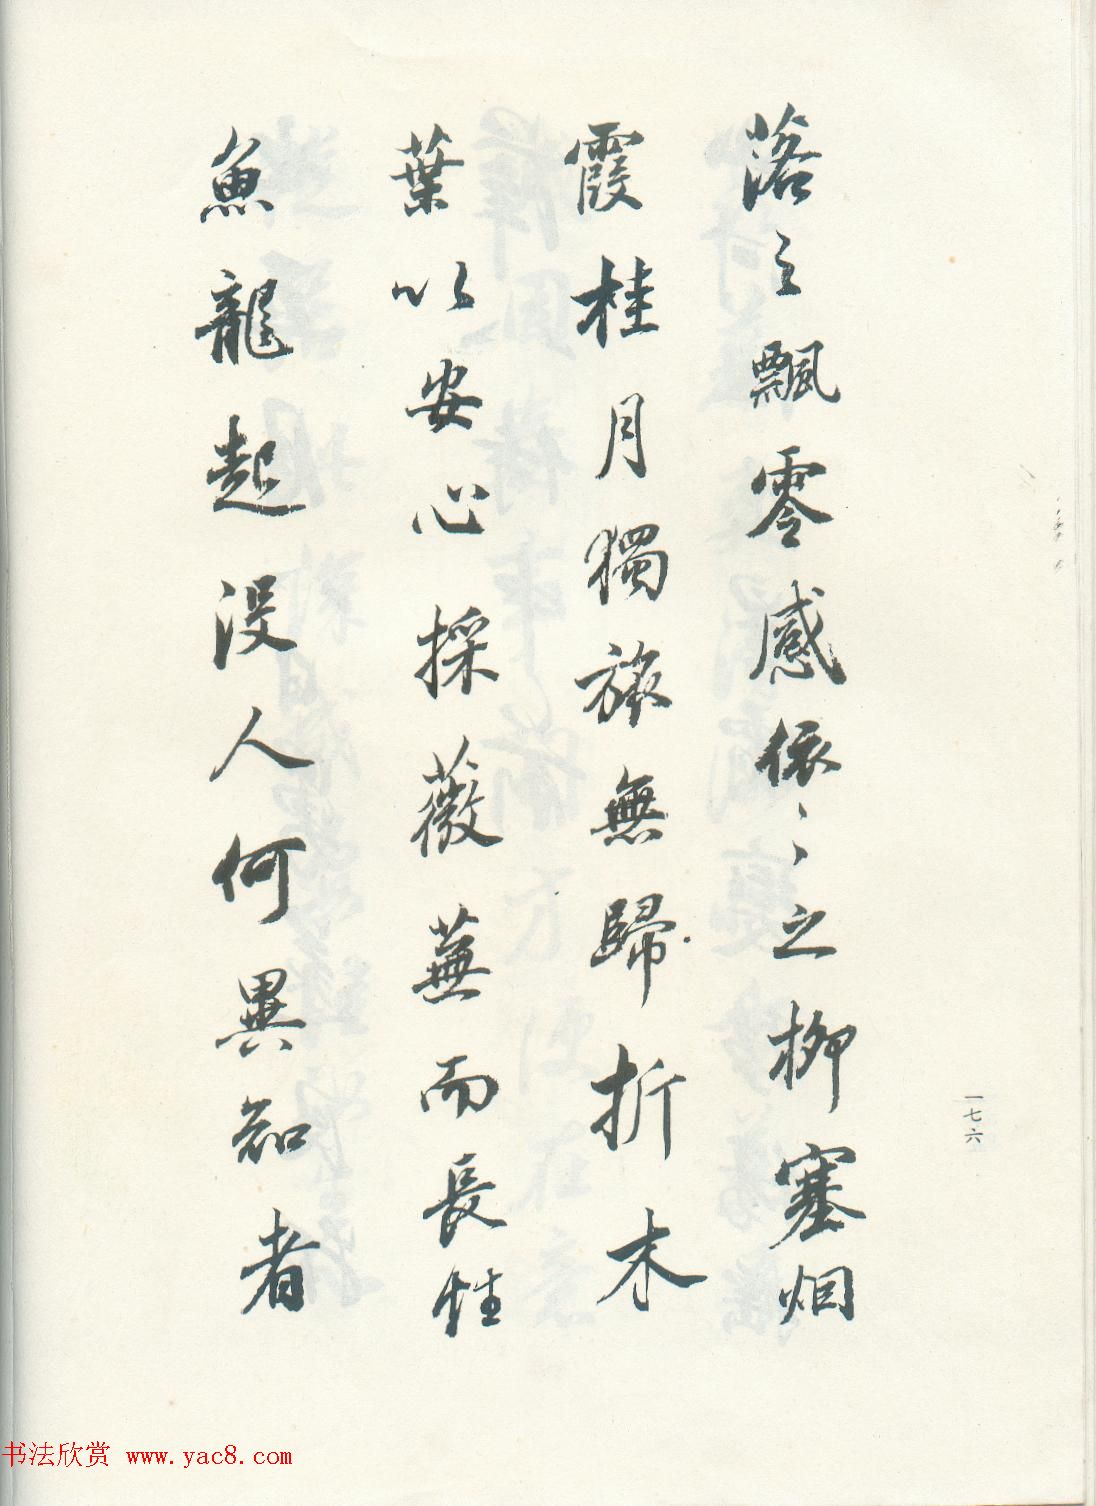 落之飄零感依〻之柳塞烟
霞桂月獨旅無歸折木
葉以安心採薇蕪而長性
魚龍起没人何異知者
一七六
书法欣赏 www.yac8.com